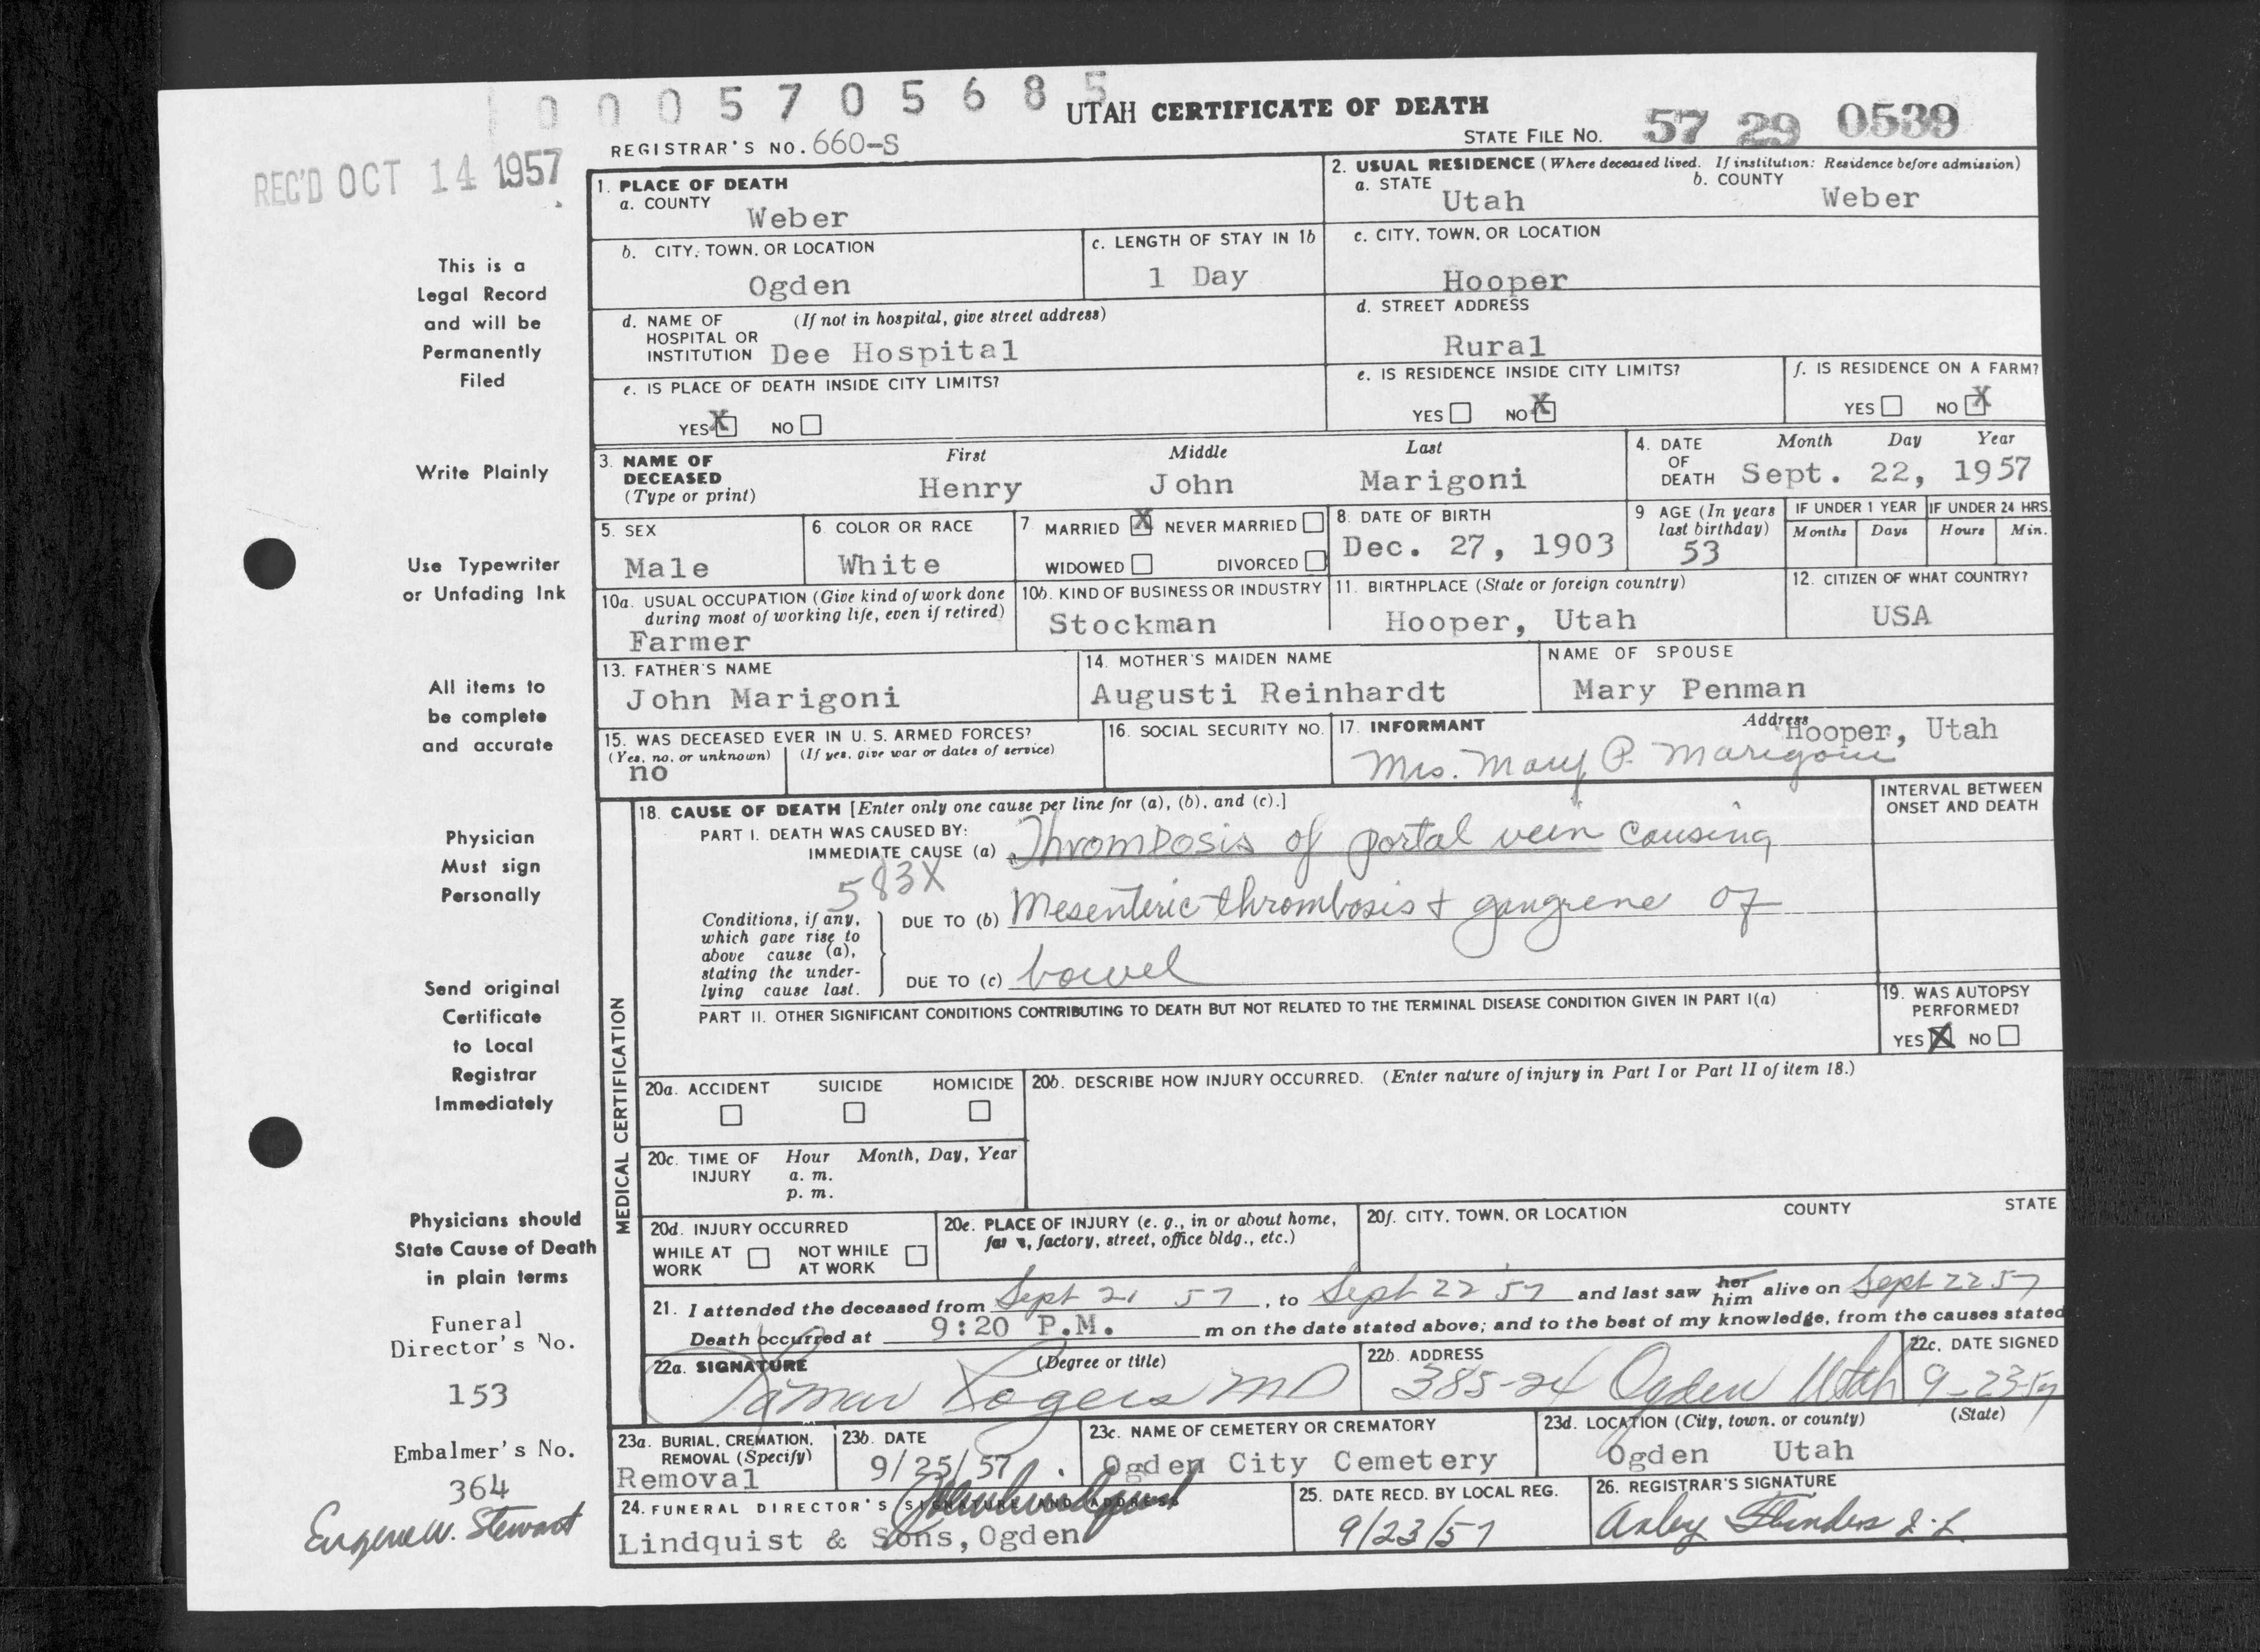 0005705685
UTAH CERTIFICATE OF DEATH
REGISTRAR'S NO. 660-S
STATE FILE NO. 57 29 0539
REC'D OCT 14 1957
This is a
Legal Record
and will be
Permanently
Filed
Write Plainly
Use Typewriter
or Unfading Ink
All items to
be complete
and accurate
Physician
Must sign
Personally
Send original
Certificate
to Local
Registrar
Immediately
Physicians should
State Cause of Death
in plain terms
Funeral
Director's No.
153
Embalmer's No.
364
Eugene W. Stewart
1. PLACE OF DEATH
a. COUNTY
Weber
2. USUAL RESIDENCE (Where deceased lived. If institution: Residence before admission)
a. STATE
Utah
b. COUNTY
Weber
b. CITY, TOWN, OR LOCATION
Ogden
c. LENGTH OF STAY IN 1b
1 Day
c. CITY, TOWN, OR LOCATION
Hooper
d. NAME OF (If not in hospital, give street address)
HOSPITAL OR
INSTITUTION Dee Hospital
d. STREET ADDRESS
Rural
e. IS PLACE OF DEATH INSIDE CITY LIMITS?
YES X NO
e. IS RESIDENCE INSIDE CITY LIMITS?
YES NO X
f. IS RESIDENCE ON A FARM?
YES NO X
3. NAME OF
DECEASED
(Type or print)
First Middle Last
Henry John Marigoni
4. DATE
OF
DEATH
Month Day Year
Sept. 22, 1957
5. SEX
Male
6. COLOR OR RACE
White
7. MARRIED X NEVER MARRIED
WIDOWED DIVORCED
8. DATE OF BIRTH
Dec. 27, 1903
9 AGE (In years
last birthday)
53
IF UNDER 1 YEAR
Months Days
IF UNDER 24 HRS.
Hours Min.
10a. USUAL OCCUPATION (Give kind of work done
during most of working life, even if retired)
Farmer
10b. KIND OF BUSINESS OR INDUSTRY
Stockman
11. BIRTHPLACE (State or foreign country)
Hooper, Utah
12. CITIZEN OF WHAT COUNTRY?
USA
13. FATHER'S NAME
John Marigoni
14. MOTHER'S MAIDEN NAME
Augusti Reinhardt
NAME OF SPOUSE
Mary Penman
15. WAS DECEASED EVER IN U. S. ARMED FORCES?
(Yes, no, or unknown) (If yes, give war or dates of service)
no
16. SOCIAL SECURITY NO.
17. INFORMANT Address
Hooper, Utah
Mrs. Mary P. Marigoni
MEDICAL CERTIFICATION
18. CAUSE OF DEATH [Enter only one cause per line for (a), (b), and (c).]
PART I. DEATH WAS CAUSED BY:
IMMEDIATE CAUSE (a) Thrombosis of portal vein causing
583X
Conditions, if any,
which gave rise to
above cause (a),
stating the under-
lying cause last.
DUE TO (b) Mesenteric thrombosis + gangrene of
DUE TO (c) bowel
INTERVAL BETWEEN
ONSET AND DEATH
PART II. OTHER SIGNIFICANT CONDITIONS CONTRIBUTING TO DEATH BUT NOT RELATED TO THE TERMINAL DISEASE CONDITION GIVEN IN PART I(a)
19. WAS AUTOPSY
PERFORMED?
YES X NO
20a. ACCIDENT SUICIDE HOMICIDE
20b. DESCRIBE HOW INJURY OCCURRED. (Enter nature of injury in Part I or Part II of item 18.)
20c. TIME OF Hour Month, Day, Year
INJURY a. m.
p. m.
20d. INJURY OCCURRED
WHILE AT NOT WHILE
WORK AT WORK
20e. PLACE OF INJURY (e. g., in or about home,
factory, street, office bldg., etc.)
20f. CITY, TOWN, OR LOCATION COUNTY STATE
21. I attended the deceased from Sept 21 57, to Sept 22 57 and last saw her him alive on Sept 22 57
Death occurred at 9:20 P.M. m on the date stated above; and to the best of my knowledge, from the causes stated
22a. SIGNATURE (Degree or title)
Rogers MD
22b. ADDRESS
385-24 Ogden Utah
22c. DATE SIGNED
9-23-57
23a. BURIAL, CREMATION,
REMOVAL (Specify)
Removal
23b. DATE
9/25/57
23c. NAME OF CEMETERY OR CREMATORY
Ogden City Cemetery
23d. LOCATION (City, town, or county) (State)
Ogden Utah
24. FUNERAL DIRECTOR'S SIGNATURE AND ADDRESS
Lindquist & Sons, Ogden
25. DATE RECD. BY LOCAL REG.
9/23/57
26. REGISTRAR'S SIGNATURE